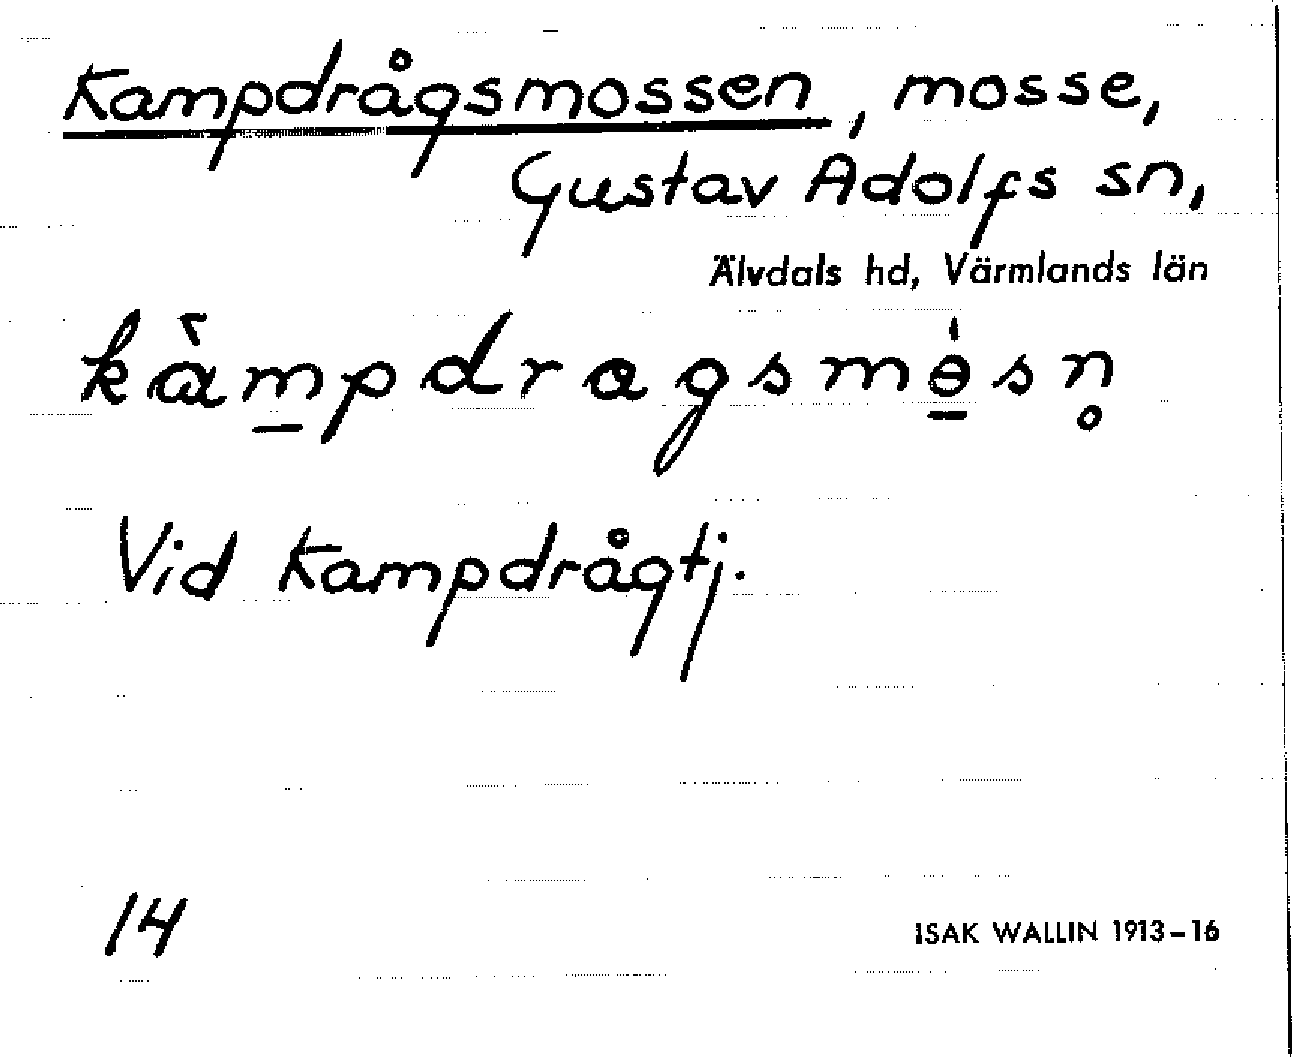 Kampdrågsmossen, mosse,
Gustav Adolfs sn,
Älvdals hd, Värmlands län
kàm̲pdragsmө̲́sn̥
Vid Kampdrågtj.
14
ISAK WALLIN 1913–16